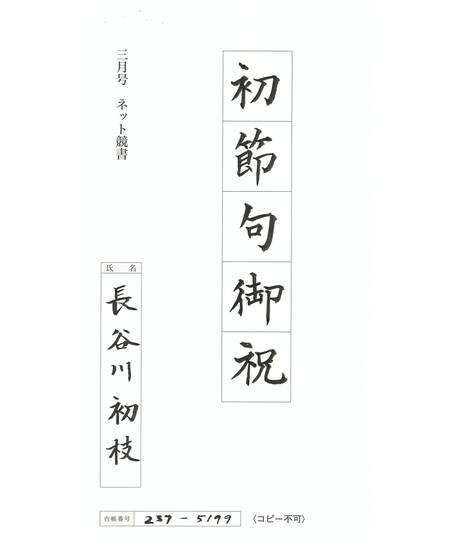 初節句御祝
三月号 ネット競書
氏名
長谷川初枝
台帳番号 237-5199 〈コピー不可〉